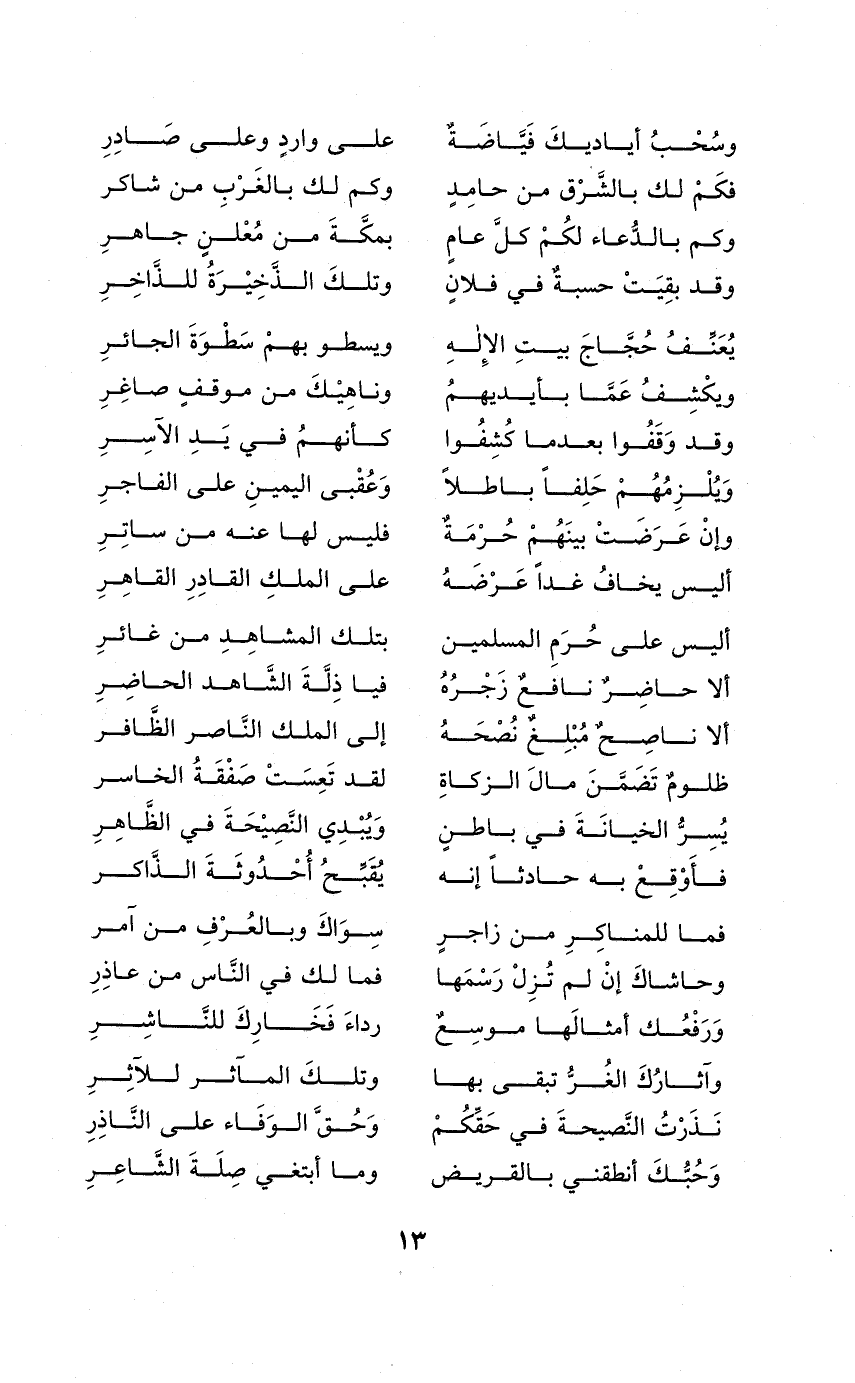 وسُحْبُ أياديكَ فَيَّاضَةٌ على واردٍ وعلى صَادِرِ
فكَمْ لك بالشَّرْق من حامدٍ وكم لك بالغَرْبِ من شاكر
وكم بالدُّعاء لكُمْ كلَّ عامٍ بمكَّةَ من مُعْلنٍ جاهرِ
وقد بقِيَتْ حسبةٌ في فلانٍ وتلكَ الذَّخِيْرَةُ للذَّاخِرِ
يُعَنِّفُ حُجَّاجَ بيتِ الإلٰهِ ويسطو بهمْ سَطْوَةَ الجائرِ
ويكْشِفُ عَمَّا بأيديهمُ وناهِيْكَ من موقفٍ صاغرِ
وقد وَقَفُوا بعدما كُشِفُوا كأنهمُ في يَدِ الآسِرِ
وَيُلْزِمُهُمْ حَلِفاً باطلاً وَعُقْبى اليمينِ على الفاجرِ
وإنْ عَرَضَتْ بينَهُمْ حُرْمَةٌ فليس لها عنه من ساتِرِ
أليس يخافُ غداً عَرْضَهُ على الملكِ القادرِ القاهرِ
أليس على حُرَمِ المسلمين بتلك المشاهدِ من غائرِ
ألا حاضِرٌ نافعٌ زَجْرُهُ فيا ذِلَّةَ الشَّاهد الحاضِرِ
ألا ناصحٌ مُبْلغٌ نُصْحَهُ إلى الملك النَّاصر الظَّافرِ
ظلومٌ تَضَمَّنَ مالَ الزكاةِ لقد تَعِسَتْ صَفْقَةُ الخاسرِ
يُسِرُّ الخيانَةَ في باطنٍ وَيُبْدِي النَّصِيْحَةَ في الظَّاهِرِ
فأَوْقِعْ به حادثاً إنه يُقَبِّحُ أُحْدُوثَةَ الذَّاكرِ
فما للمناكِرِ من زاجرٍ سِوَاكَ وبالعُرْفِ من آمرِ
وحاشاكَ إنْ لم تُزِلْ رَسْمَها فما لك في النَّاس من عاذِرِ
وَرَفْعُك أمثالَها موسِعٌ رداءَ فَخَارِكَ للنَّاشِرِ
وآثارُكَ الغُرُّ تبقى بها وتلكَ المآثر للآثِرِ
نَذَرْتُ النَّصيحةَ في حَقِّكُمْ وَحُقَّ الوَفَاء على النَّاذِرِ
وَحُبُّكَ أنطقني بالقريض وما أبتغي صِلَةَ الشَّاعِرِ
١٣